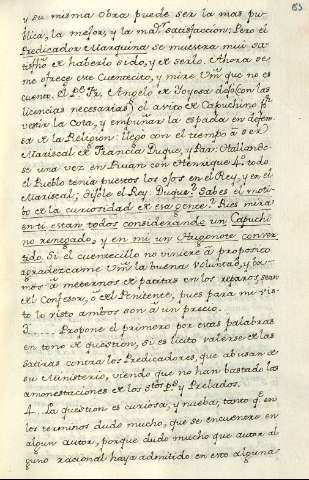 83
y su misma obra puede ser la mas pu-
blica, la mejor, y la mayr satisfaccion. Pero el
Predicador Marquina se muestra muy sa-
tisfho de haberlo sido, y de serlo. Ahora se
me ofrece ese Cuentecito, y mire Vm que no es
cuento. El Pe Fr. Angelo de Joyosa dejó (con las
licencias necesarias) el avito de Capuchino pr
vestir la Cota, y empuñar la espada en defen
sa de la Religion: llegó con el tiempo a ser
Mariscal de Francia Duque, y Par. Hallando-
se una vez en Ruan con Henrique 4o todo
el Pueblo tenia puestos los ojos en el Rey, y en el
Mariscal; dijole el Rey: Duque? Sabes el moti-
bo de la curiosidad de esa gente? Pues mira
en ti estan todos considerando un Capuchi
no renegado, y en mi un Hugonote conver
tido. Si el cuentecillo no viniere a proposito
agradezcame Vm la buena voluntad, y va-
mos a meternos de patitas en los reparos, sean
del Confesor, o del Penitente, pues para mi vis-
to lo visto ambos son a un precio.
3 Propone el primero por estas palabras
en tono de question, si es licito valerse de las
satiras contra los Predicadores, que abusan de
su Ministerio, viendo que no han bastado las
amonestaciones de los Stos Ps, y Prelados.
4. La question es curiosa, y nueba; tanto qe en
los terminos dudo mucho, que se encuentre en
algun autor, porque dudo mucho que autor al
guno racional haya admitido en esto alguna